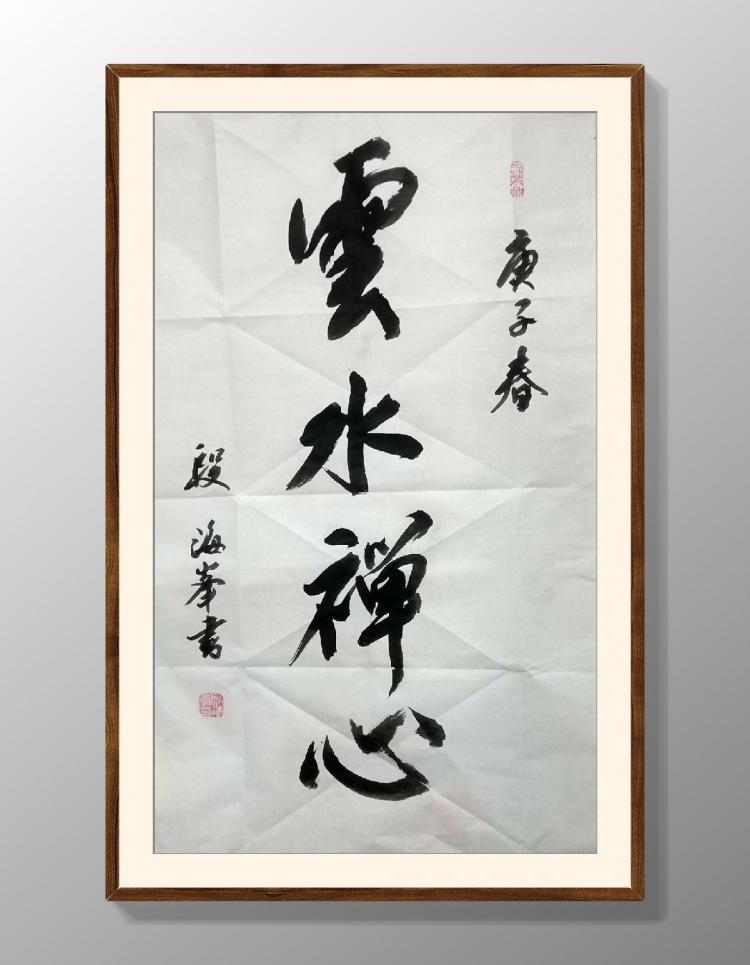 庚子春
雲水禪心
段海峯書